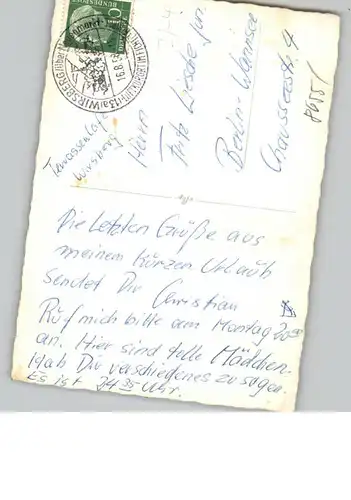 DEUTSCHE
BUNDESPOST
WIRSBERG
16.8.5
Terrassencafe
Wirsberg
Herrn
Fritz Liesche jun.
Berlin-Wannsee
Chausseestr. 4
8655/
Die letzten Grüße aus
meinem kurzen Urlaub
sendet Dir Christian
Ruf mich bitte am Montag 20 00
an. Hier sind tolle Mädchen.
Hab Dir verschiedenes zu sagen.
Es ist 24 35 Uhr.